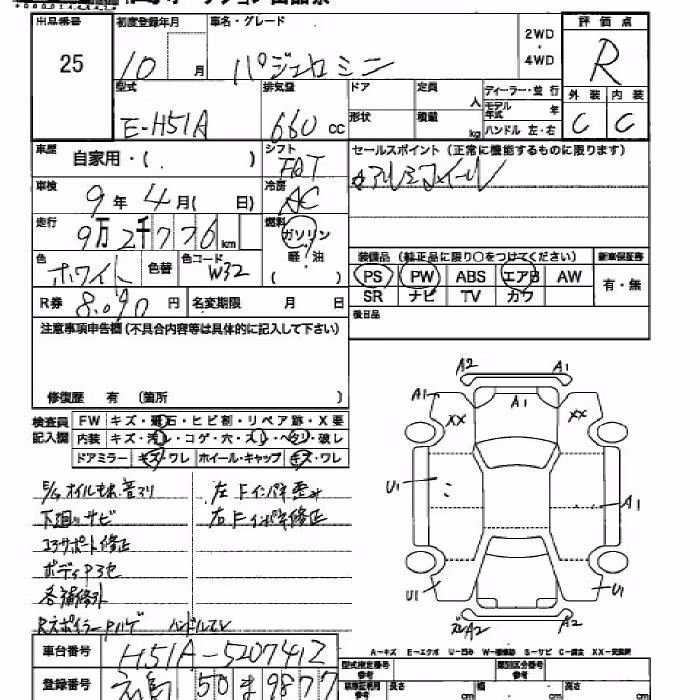 出品番号 初度登録年月 車名・グレード 2WD ・ 4WD 評価点
25 10 月 パジェロミニ R
型式 排気量 ドア 定員 人 ディーラー・並行 外装 内装
E-H51A 660 cc 形状 積載 kg モデル年式 年 ハンドル 左・右 C C
車歴 自家用・( ) シフト FAT セールスポイント (正常に機能するものに限ります)
車検 9 年 4 月( 日) 冷房 AC アルミホイール
走行 9万2千776 km 燃料 ガソリン 軽・油
色 ホワイト 色替 色コード W32 装備品 (純正品に限り○をつけてください) 新車保証書
PS PW ABS エアB AW 有・無
R券 8.090 円 名変期限 月 日 SR ナビ TV カワ
後日品
注意事項申告欄 (不具合内容等は具体的に記入して下さい)
修復歴 有 (箇所 )
検査員記入欄 FW キズ・飛石・ヒビ割・リペア跡・X要
内装 キズ・汚レ・コゲ・穴・スレ・ヘタリ・破レ
ドアミラー キズ・ワレ ホイール・キャップ キズ・ワレ
A2 A1
A1 XX A1 XX
U1 A1
U1 U1
A2 A2
E/g オイルモレ.音アリ 左Fインパネ歪み
下廻りサビ 右Fインパネ修正
コアサポート修正
ボディP3セ
各補修外
Rスポイラー Pハゲ ハンドルスレ
A-キズ E-エクボ U-凹み W-補修跡 S-サビ C-腐食 XX-交換済
車台番号 H51A-5207412 型式指定番号 参考 類別区分番号 参考
登録番号 50 ま 9877 車庫証明用 参考 長さ cm 幅 cm 高さ cm